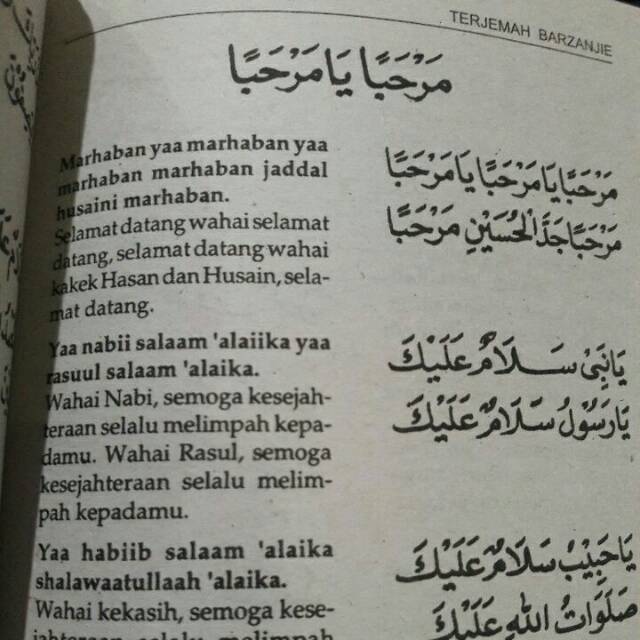 TERJEMAH BARZANJIE
مَرْحَبًا يَا مَرْحَبًا
Marhaban yaa marhaban yaa
marhaban marhaban jaddal
husaini marhaban.
Selamat datang wahai selamat
datang, selamat datang wahai
kakek Hasan dan Husain, sela-
mat datang.
مَرْحَبًا يَا مَرْحَبًا يَا مَرْحَبًا
مَرْحَبًا جَدَّ الْحُسَيْنِ مَرْحَبًا
Yaa nabii salaam 'alaiika yaa
rasuul salaam 'alaika.
Wahai Nabi, semoga kesejah-
teraan selalu melimpah kepa-
damu. Wahai Rasul, semoga
kesejahteraan selalu melim-
pah kepadamu.
يَا نَبِيْ سَلَامٌ عَلَيْكَ
يَا رَسُوْلُ سَلَامٌ عَلَيْكَ
Yaa habiib salaam 'alaika
shalawaatullaah 'alaika.
Wahai kekasih, semoga kese-
jahteraan selalu melimpah
يَا حَبِيْبُ سَلَامٌ عَلَيْكَ
صَلَوَاتُ اللهِ عَلَيْكَ